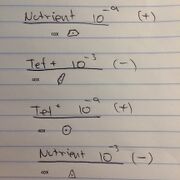 Nutrient 10⁻⁹ (+)
Tet + 10⁻³ (-)
Tet⁺ 10⁻⁹ (+)
Nutrient 10⁻³ (-)